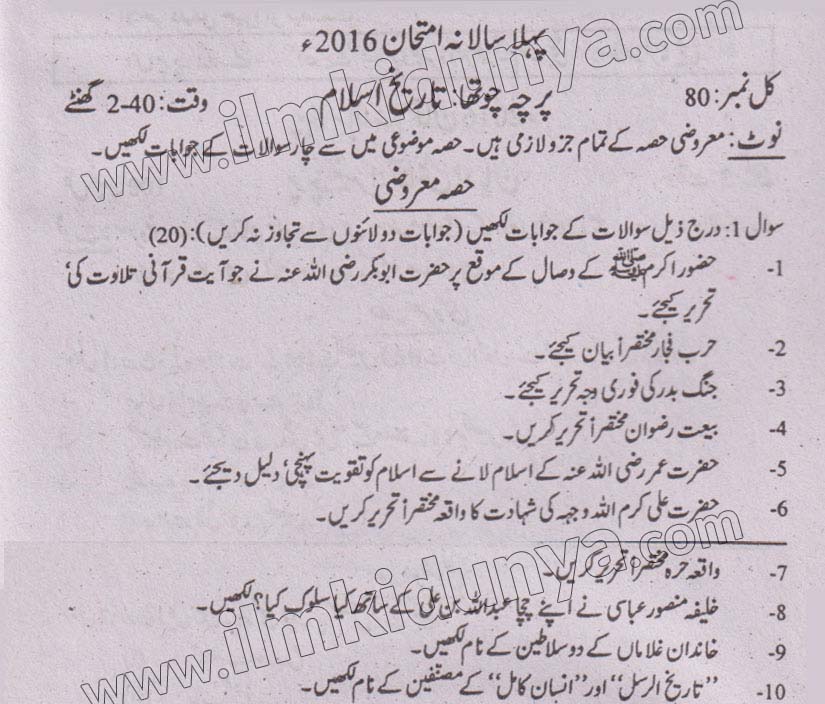 پہلا سالانہ امتحان 2016ء
کل نمبر: 80 پرچہ چوتھا: تاریخ اسلام وقت: 40-2 گھنٹے
نوٹ: معروضی حصہ کے تمام جزو لازمی ہیں۔ حصہ موضوعی میں سے چار سوالات کے جوابات لکھیں۔
حصہ معروضی
سوال 1: درج ذیل سوالات کے جوابات لکھیں (جوابات دو لائنوں سے تجاوز نہ کریں): (20)
1- حضور اکرم ﷺ کے وصال کے موقع پر حضرت ابوبکر رضی اللہ عنہ نے جو آیت قرآنی تلاوت کی'
تحریر کیجئے۔
2- حرب فجار مختصراً بیان کیجئے۔
3- جنگ بدر کی فوری وجہ تحریر کیجئے۔
4- بیعت رضوان مختصراً تحریر کریں۔
5- حضرت عمر رضی اللہ عنہ کے اسلام لانے سے اسلام کو تقویت پہنچی' دلیل دیجئے۔
6- حضرت علی کرم اللہ وجہہ کی شہادت کا واقعہ مختصراً تحریر کریں۔
7- واقعہ حرہ مختصراً تحریر کریں۔
8- خلیفہ منصور عباسی نے اپنے چچا عبداللہ بن علی کے ساتھ کیا سلوک کیا؟ لکھیں۔
9- خاندان غلاماں کے دو سلاطین کے نام لکھیں۔
10- "تاریخ الرسل" اور "انسان کامل" کے مصنفین کے نام لکھیں۔
www.ilmkidunya.com
www.ilmkidunya.com